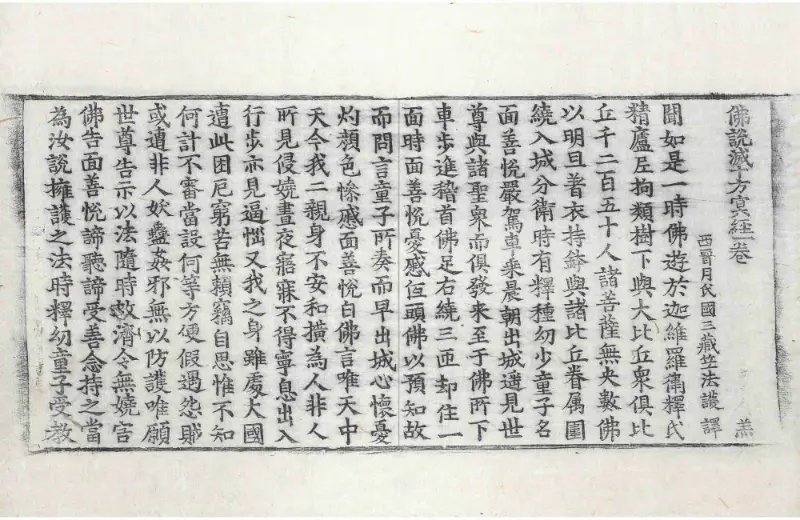 佛說滅十方冥經一卷
西晉月氏國三藏竺法護譯
羔
聞如是一時佛遊於迦維羅衛釋氏
精廬尼拘類樹下與大比丘衆俱比
丘千二百五十人諸菩薩無央數佛
以明旦著衣持鉢與諸比丘眷属圍
繞入城分衛時有釋種幼少童子名
面善悅嚴駕車乘晨朝出城遙見世
尊與諸聖衆而俱發來至于佛所下
車步進稽首佛足右繞三匝却住一
面時面善悅憂慼低頭佛以預知故
而問言童子所奏而早出城心懷憂
灼顏色慘慼面善悅白佛言唯天中
天今我二親身不安和橫為人非人
所見侵嬈晝夜寤寐不得寧息出入
行步亦見逼惱又我之身雖處大國
遭此困厄窮苦無賴竊自思惟不知
何計不審當設何等方便假遇怨賊
或遭非人妖蠱姦邪無以防護唯願
世尊告示以法隨時救濟令無嬈害
佛告面善悅諦聽諦受善念持之當
為汝說擁護之法時釋幼童子受教